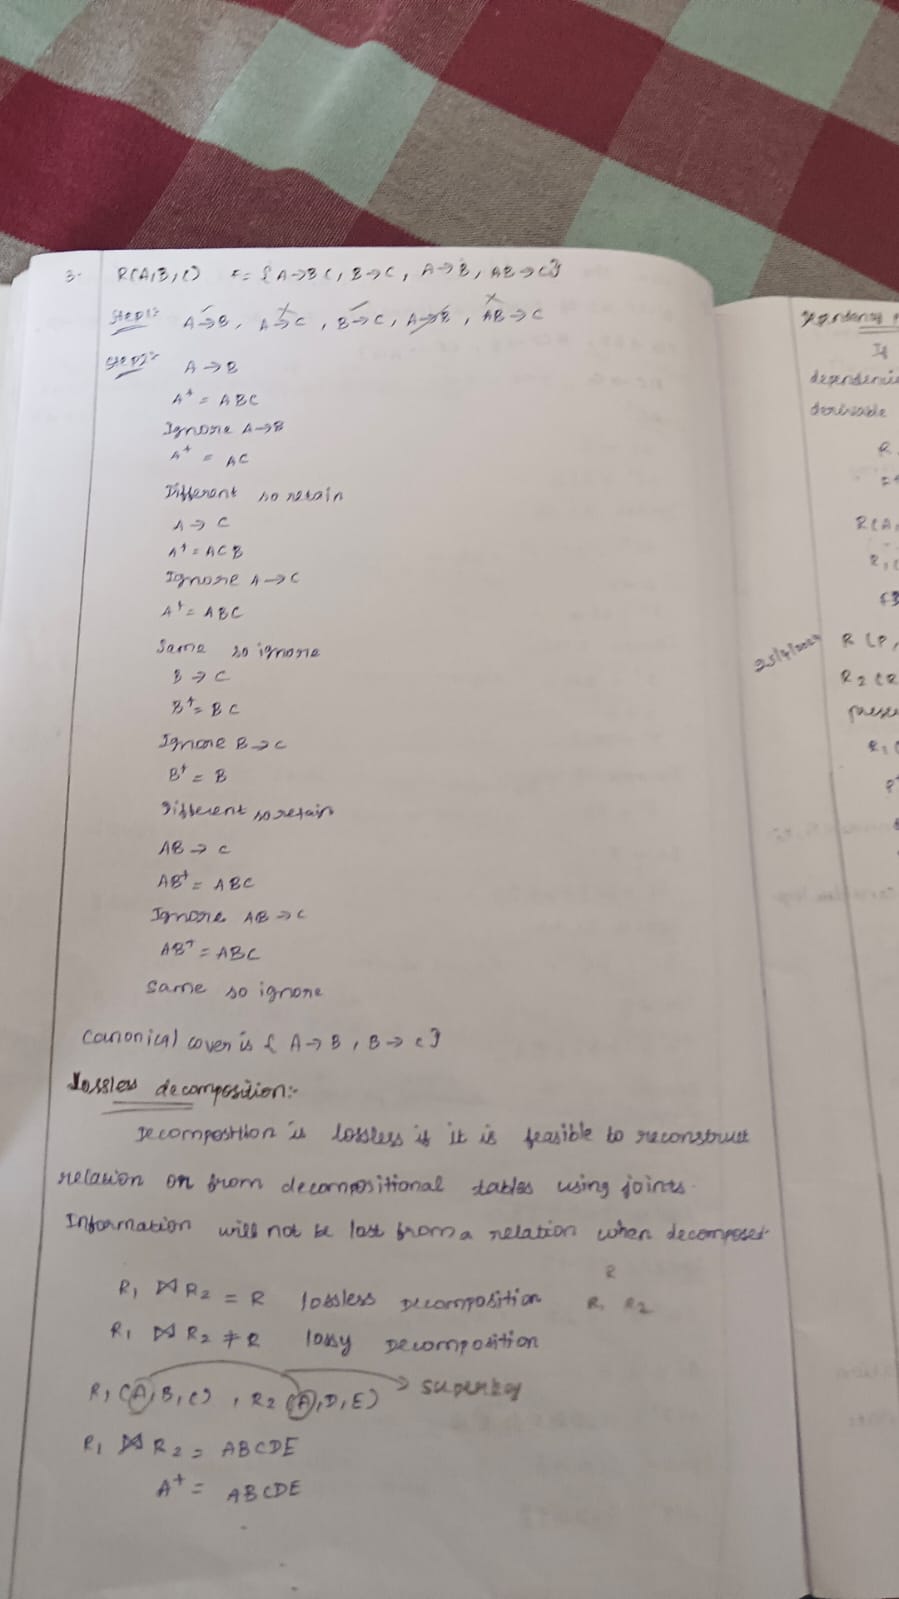 3. R(A,B,C) F = { A→BC, B→C, A→B, AB→C}
Step1:- A→B, A→C, B→C, A→B, AB→C
Step2:- A→B
A+ = ABC
Ignore A→B
A+ = AC
Different so retain
A→C
A+ = ACB
Ignore A→C
A+ = ABC
Same so ignore
B→C
B+ = BC
Ignore B→C
B+ = B
Different so retain
AB→C
AB+ = ABC
Ignore AB→C
AB+ = ABC
Same so ignore
Canonical cover is { A→B, B→C}
Lossless decomposition:-
Decomposition is lossless if it is feasible to reconstruct
relation on from decompositional tables using joints.
Information will not be lost from a relation when decomposed.
R
R1 ⋈ R2 = R lossless Decomposition R1 R2
R1 ⋈ R2 ≠ R lossy Decomposition
R1(A,B,C), R2(A,D,E) → superkey
R1 ⋈ R2 = ABCDE
A+ = ABCDE
If
derivable
R
R(A,
25/4/2024 R(P,
R2(R